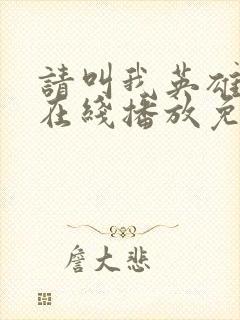 請叫我英雄
在綫播放免
詹大悲